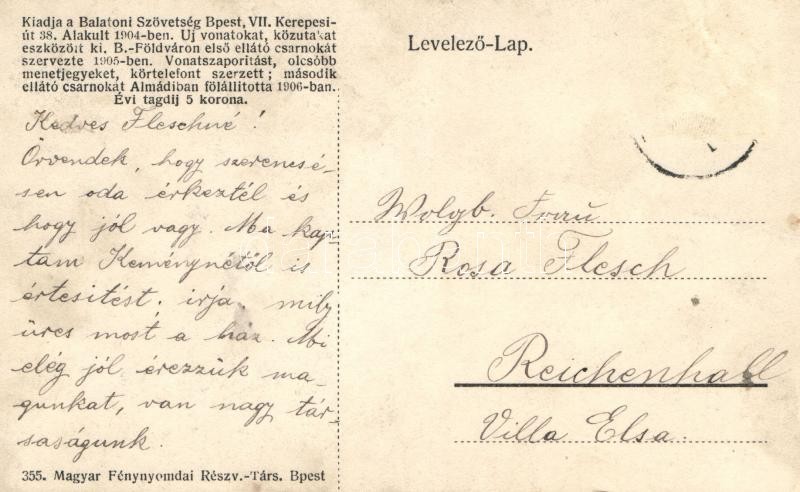 Kiadja a Balatoni Szövetség Bpest, VII. Kerepesi-
út 38. Alakult 1904-ben. Uj vonatokat, közutakat
eszközölt ki. B.-Földváron első ellátó csarnokát
szervezte 1905-ben. Vonatszaporitást, olcsóbb
menetjegyeket, körtelefont szerzett; második
ellátó csarnokát Almádiban fölállitotta 1906-ban.
Évi tagdij 5 korona.
Kedves Fleschné!
Örvendek, hogy szerencsé-
sen oda érkeztél és
hogy jól vagy. Ma kap-
tam Keménynétől is
értesitést, irja, mily
üres most a ház. Mi
elég jól érezzük ma-
gunkat, van nagy tár-
saságunk.
355. Magyar Fénynyomdai Részv.-Társ. Bpest
Levelező-Lap.
Wolgb. Frau
Rosa Flesch
Reichenhall
Villa Elsa.